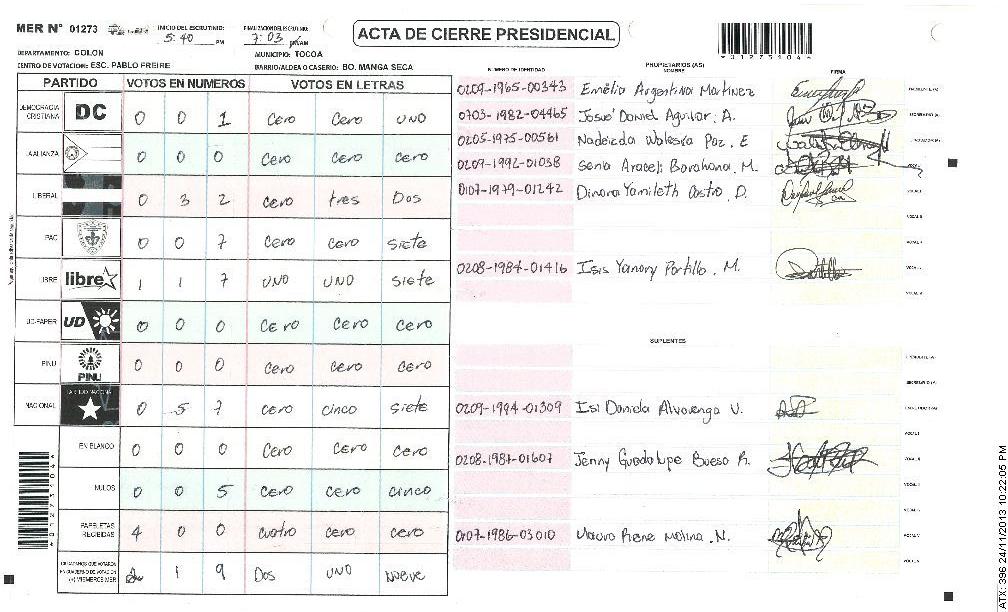 MER N° 01273
INICIO DEL ESCRUTINIO:
5:40 PM
FINALIZACION DEL ESCRUTINIO:
7:03 PM/AM
ACTA DE CIERRE PRESIDENCIAL
DEPARTAMENTO: COLON
MUNICIPIO: TOCOA
CENTRO DE VOTACION: ESC. PABLO FREIRE
BARRIO/ALDEA O CASERIO: BO. MANGA SECA
PARTIDO VOTOS EN NUMEROS VOTOS EN LETRAS
DEMOCRACIA CRISTIANA DC 0 0 1 Cero Cero UNO
LA ALIANZA 0 0 0 Cero Cero Cero
LIBERAL 0 3 2 Cero tres Dos
PAC 0 0 7 Cero Cero Siete
LIBRE libre 1 1 7 UNO UNO Siete
UD-FAPER UD 0 0 0 Cero Cero Cero
PINU PINU 0 0 0 Cero Cero Cero
NACIONAL PARTIDO NACIONAL 0 5 7 Cero Cinco Siete
EN BLANCO 0 0 0 Cero Cero Cero
NULOS 0 0 5 Cero Cero Cinco
PAPELETAS RECIBIDAS 4 0 0 Cuatro Cero Cero
CIUDADANOS QUE VOTARON EN CUADERNO DE VOTACION (+) MIEMBROS MER 1 9 Dos UNO Nueve
PROPIETARIOS (AS)
NUMERO DE IDENTIDAD NOMBRE FIRMA
0209-1965-00343 Emelia Argentina Martinez
0703-1982-04465 Josue Daniel Aguilar. A.
0205-1975-00561 Nadeida Walesra Paz. E
0209-1992-01038 Senia Araceli Barahona. M.
0107-1979-01242 Dinora Yamileth Castro. D.
0208-1984-01416 Isis Yanory Portillo. M.
SUPLENTES
0209-1994-01309 Isi Daniela Alvarenga V.
0208-1987-01607 Jenny Guadalupe Bueso R.
0107-1986-03010 Mauro Rene Molina. N.
ATX: 396 24/11/2013 10:22:05 PM